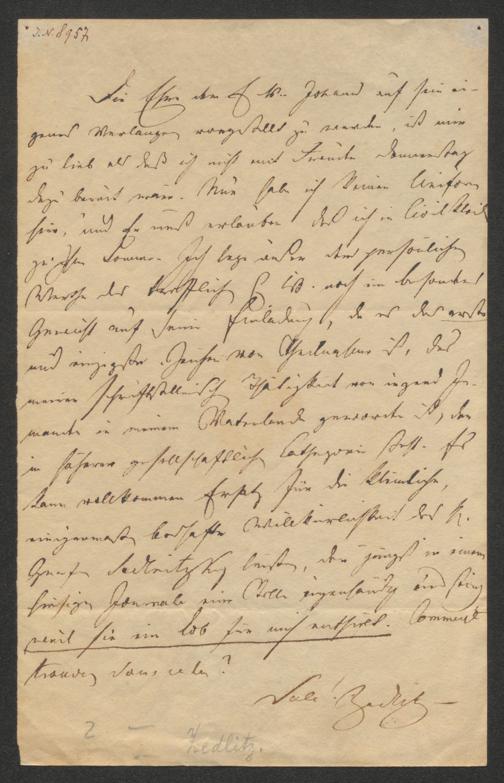 J.N. 8957
Die Ehre dem E H. Johann auf sein ei-
genes Verlangen vorgestellt zu werden, ist mir
zu lieb als daß ich nicht mit Freude Donnerstag
dazu bereit wäre. Nun habe ich keine Uniform
hier, und Er muß erlauben daß ich in Civil Kleid
zu Ihm komme. Ich lege außer dem persönlichen
Werthe des noch ein besonderes
Gewicht auf seine Einladung, da es das erste
und einzigste Zeichen von Theilnahme ist, das
meiner schriftstellerischen Thätigkeit von irgend Je-
manden in meinem Vaterlande geworden ist, der
in höherer gesellschaftlicher Cathegorie steht. Es
kann vollkommen Ersatz für die kleinliche,
einigermaßen boshafte Willkürlichkeit des H.
Grafen Sedlnitzky leisten, der jüngst in einem
hiesigen Journale eine Stelle eigenhändig
weil sie ein Lob für mich enthielt. Comment
trouvez vous cela?
Zedlitz
2
Zedlitz.